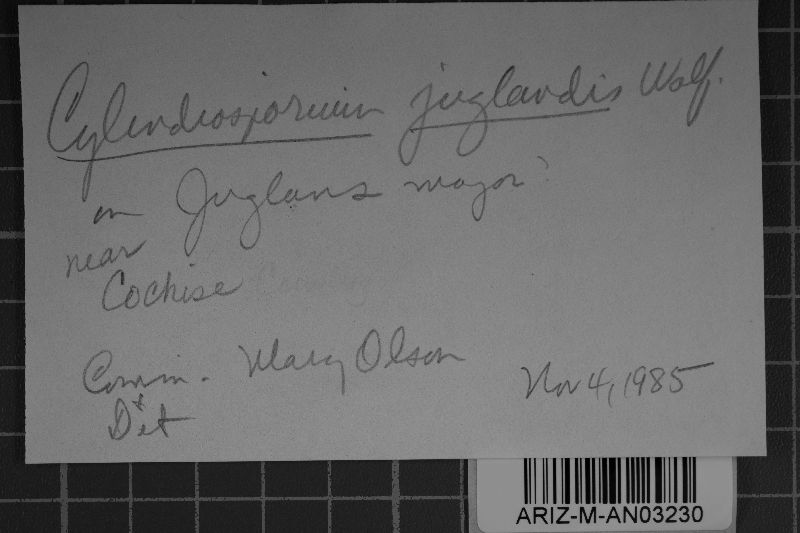 Cylindrosporium juglandis Wolf.
on Juglans major
near
Cochise
Comm. Mary Olson
& Det
Nov 4, 1985
ARIZ-M-AN03230